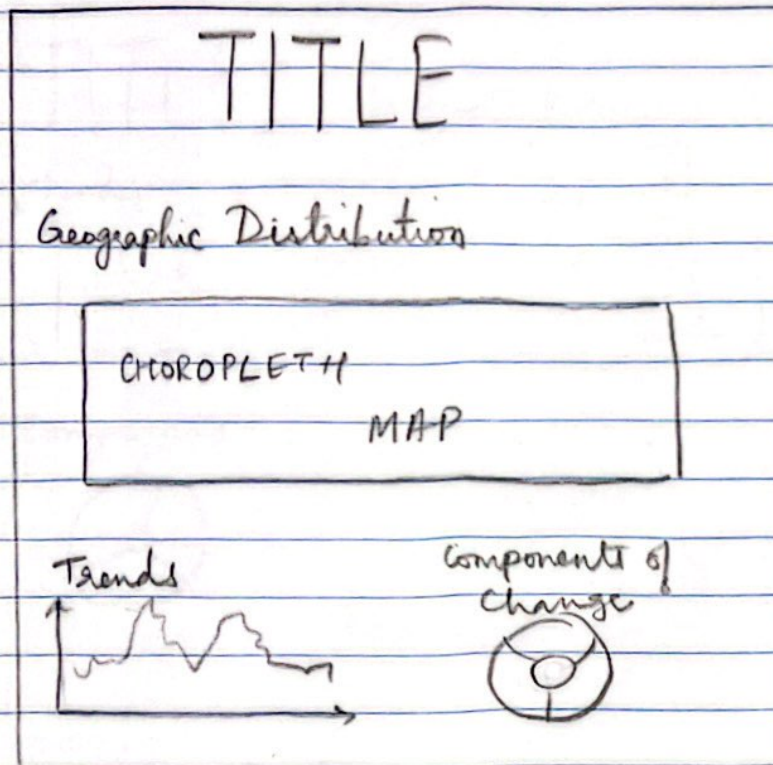 TITLE
Geographic Distribution
CHOROPLETH
MAP
Trends
Components of
Change